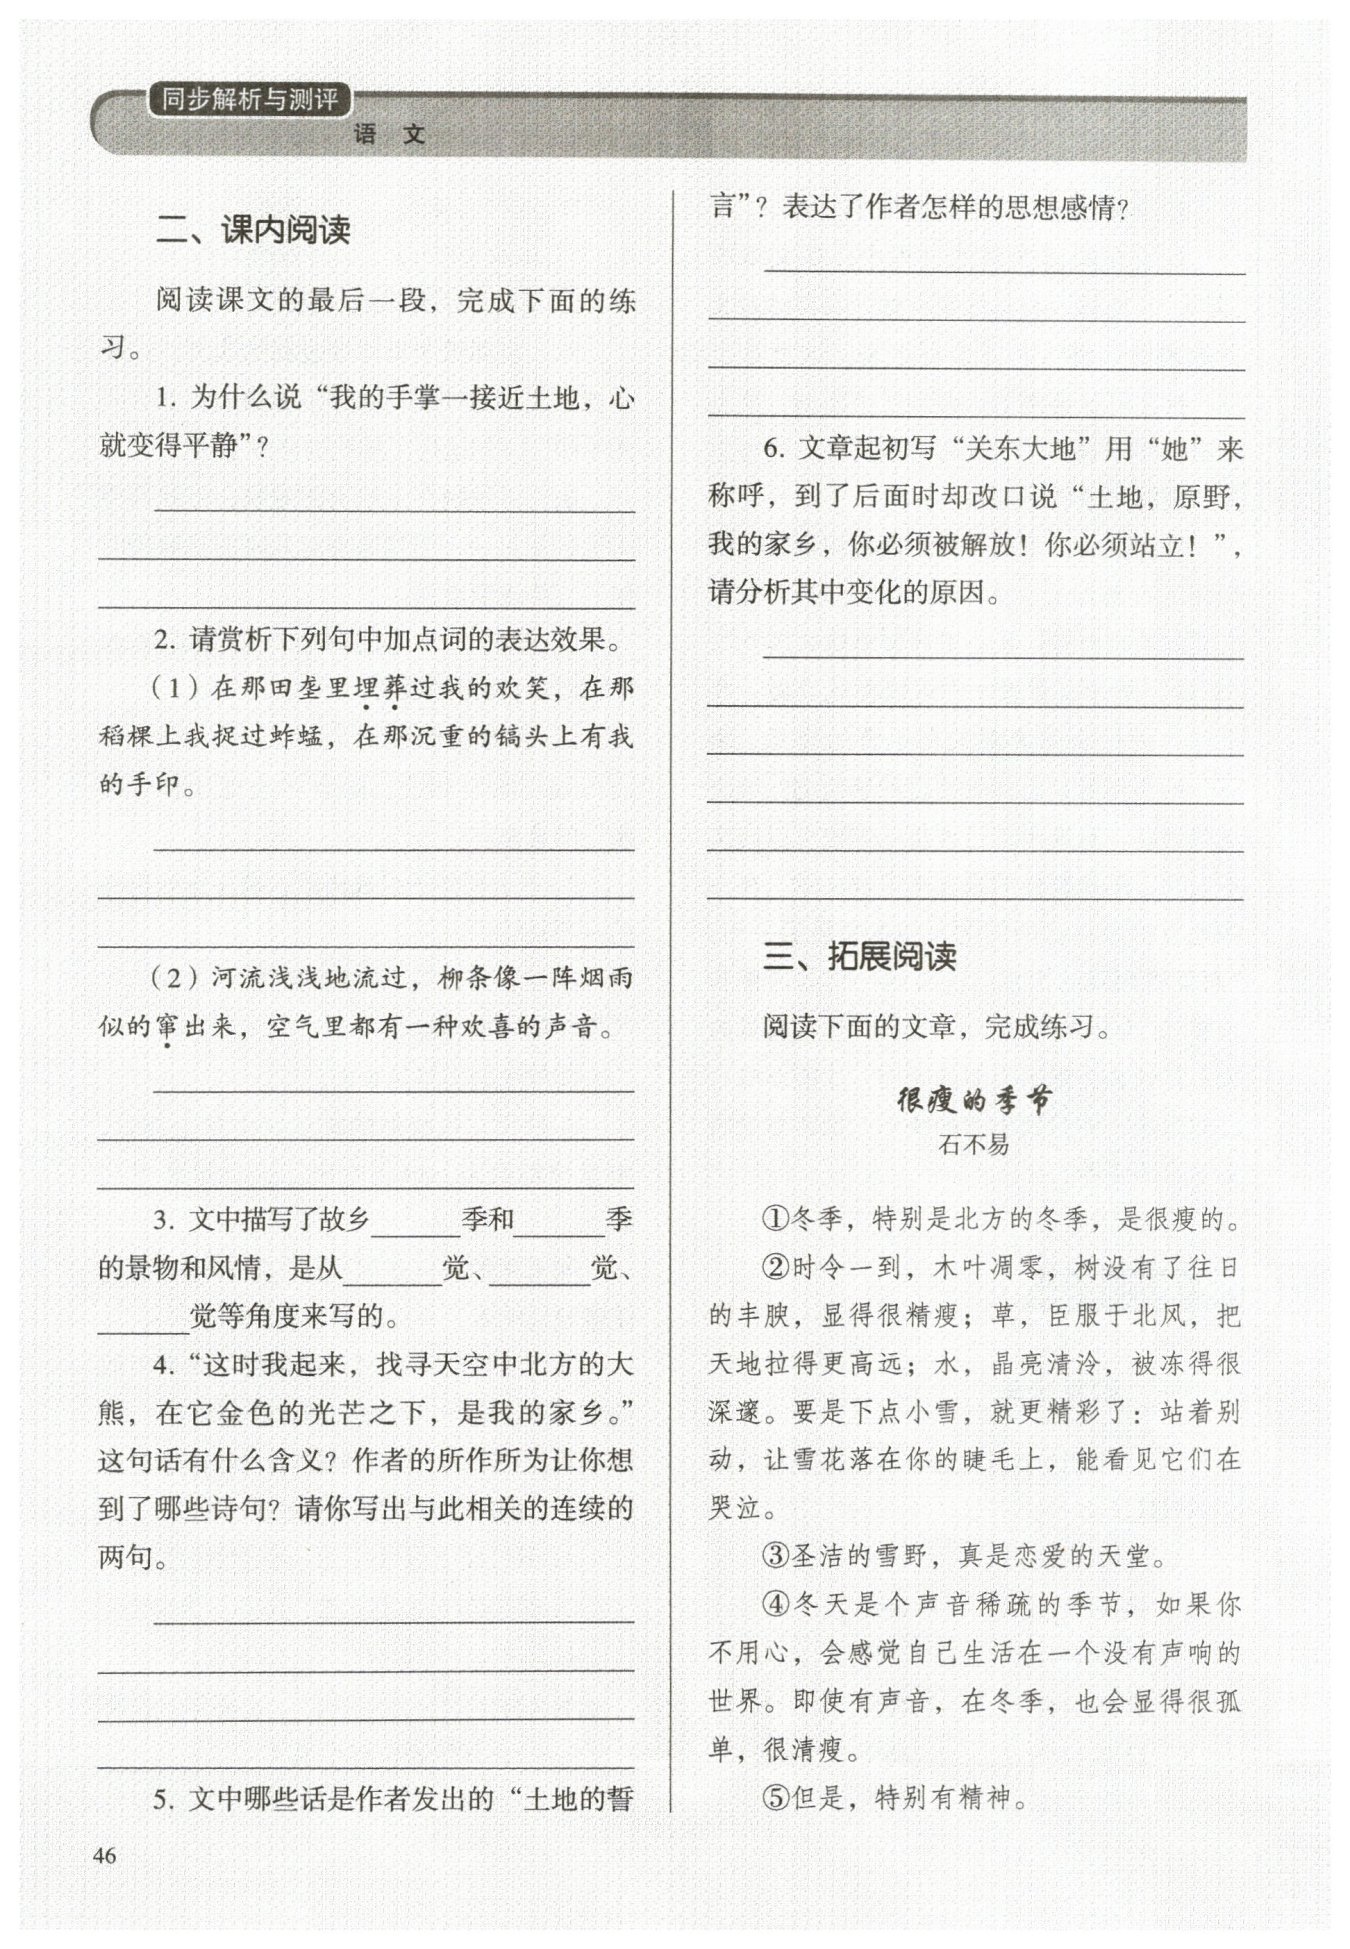 同步解析与测评
语 文
二、课内阅读
阅读课文的最后一段，完成下面的练
习。
1. 为什么说“我的手掌一接近土地，心
就变得平静”？
2. 请赏析下列句中加点词的表达效果。
（1）在那田垄里埋葬过我的欢笑，在那
稻棵上我捉过蚱蜢，在那沉重的镐头上有我
的手印。
（2）河流浅浅地流过，柳条像一阵烟雨
似的窜出来，空气里都有一种欢喜的声音。
3. 文中描写了故乡______季和______季
的景物和风情，是从______觉、______觉、
______觉等角度来写的。
4. “这时我起来，找寻天空中北方的大
熊，在它金色的光芒之下，是我的家乡。”
这句话有什么含义？作者的所作所为让你想
到了哪些诗句？请你写出与此相关的连续的
两句。
5. 文中哪些话是作者发出的“土地的誓
46
言”？表达了作者怎样的思想感情？
6. 文章起初写“关东大地”用“她”来
称呼，到了后面时却改口说“土地，原野，
我的家乡，你必须被解放！你必须站立！”，
请分析其中变化的原因。
三、拓展阅读
阅读下面的文章，完成练习。
很瘦的季节
石不易
①冬季，特别是北方的冬季，是很瘦的。
②时令一到，木叶凋零，树没有了往日
的丰腴，显得很精瘦；草，臣服于北风，把
天地拉得更高远；水，晶亮清泠，被冻得很
深邃。要是下点小雪，就更精彩了：站着别
动，让雪花落在你的睫毛上，能看见它们在
哭泣。
③圣洁的雪野，真是恋爱的天堂。
④冬天是个声音稀疏的季节，如果你
不用心，会感觉自己生活在一个没有声响的
世界。即使有声音，在冬季，也会显得很孤
单，很清瘦。
⑤但是，特别有精神。